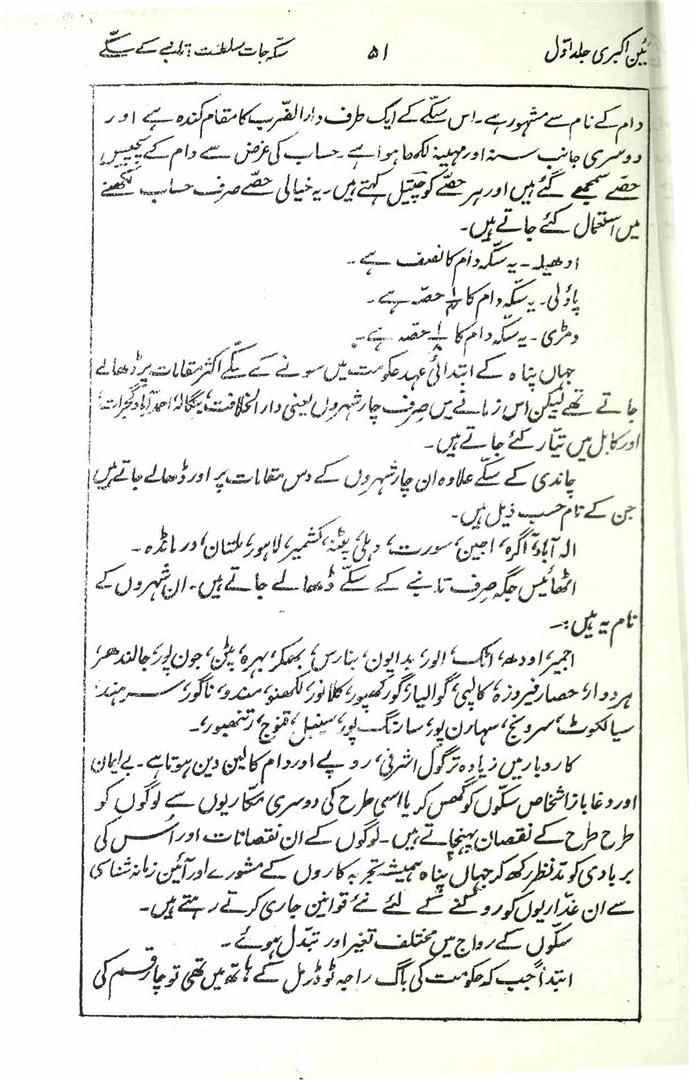 ئین اکبری جلد اوّل ۵۱ سکہ جات سلطنت: تانبے کے سکّے
دام کے نام سے مشہور ہے۔ اس سکّے کے ایک طرف دارالضرب کا مقام کندہ ہے اور
دوسری جانب سنہ اور مہینہ لکھا ہوا ہے۔ حساب کی غرض سے دام کے پچیس
حصّے سمجھے گئے ہیں اور ہر حصّے کو چیتل کہتے ہیں۔ یہ خیالی حصّے صرف حساب لکھنے
میں استعمال کئے جاتے ہیں۔
ادھیلہ۔ یہ سکّہ دام کا نصف ہے۔
پاؤلی۔ یہ سکّہ دام کا ۱/۴ حصہ ہے۔
دمڑی۔ یہ سکّہ دام کا ۱/۸ حصّہ ہے۔
جہاں پناہ کے ابتدائی عہد حکومت میں سونے کے سکّے اکثر مقامات پر ڈھالے
جاتے تھے لیکن اس زمانے میں صرف چار شہروں یعنی دار الخلافت، بنگالہ، احمد آباد گجرات،
اور کابل میں تیّار کئے جاتے ہیں۔
چاندی کے سکّے علاوہ ان چار شہروں کے دس مقامات پر اور ڈھالے جاتے ہیں
جن کے نام حسب ذیل ہیں۔
الہ آباد، آگرہ، اجین، سورت، دہلی، پٹنہ، کشمیر، لاہور، ملتان، اور ٹانڈہ۔
اٹھائیس جگہ صرف تانبے کے سکّے ڈھالے جاتے ہیں۔ ان شہروں کے
نام یہ ہیں:۔
اجمیر، اودھ، اٹک، الور، بدایوں، بنارس، بھکر، بہرہ، پٹن، جون پور، جالندھر،
ہردوار، حصار فیروزہ، کالپی، گوالیار، گورکھپور، کلانور، لکھنو، مندو، ناگور، سرہند،
سیالکوٹ، سرونج، سہارن پور، سارنگ پور، سنبل، قنوج، رنتھبور،۔
کاروبار میں زیادہ تر گول اشرفی، روپے اور دام کا لین دین ہوتا ہے۔ بے ایمان
اور دغا باز اشخاص سکّوں کو گھس کر یا اسی طرح کی دوسری مکّاریوں سے لوگوں کو
طرح طرح کے نقصان پہنچاتے ہیں۔ لوگوں کے ان نقصانات اور اُس کی
بربادی کو مدّ نظر رکھ کر جہاں پناہ ہمیشہ تجربہ کاروں کے مشورے اور آئین زمانہ شناسی
سے ان غدّاریوں کو روکنے کے لئے نئے قوانین جاری کرتے رہتے ہیں۔
سکّوں کے رواج میں مختلف تغیر اور تبدّل ہوئے۔
ابتداً جب کہ حکومت کی باگ راجہ ٹوڈرمل کے ہاتھ میں تھی تو چار قسم کی